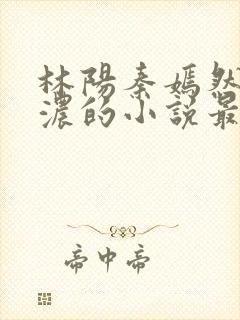 林陽秦嫣然
濃的小説最
帝中帝